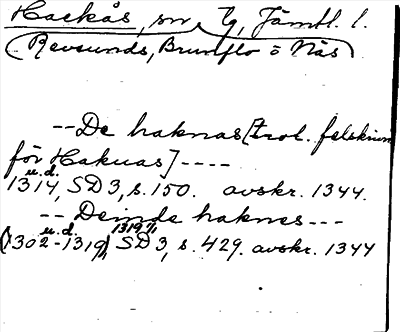 Hackås, sn, Jämtl. l.
(Revsunds, Brunflo o Näs)
-- De haknas [trol. felskriv
för Hakuas] ----
u.d.
1314, SD 3, s. 150. avskr. 1344.
-- Deinde haknes ---
u.d. 1319
(1302-1319) SD 3, s. 429. avskr. 1344